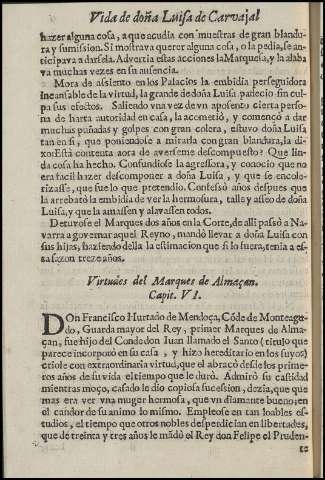 Vida de doña Luiſa de Carvajal
hazer alguna coſa, a que acudia con mueſtras de gran blandu-
ra y sumiſsion. Si moſtrava querer alguna coſa, o la pedia, ſe an-
ticipava a darſela. Advertia eſtas acciones la Marqueſa, y la alaba
va muchas vezes en ſu auſencia.
Mora de aſsiento en los Palacios la embidia perſeguidora
incanſable de la virtud, la grande de doña Luiſa padecio ſin cul
pa ſus efetos. Saliendo vna vez de vn apoſento cierta perſo-
na de harta autoridad en caſa, la acometió, y començó a dar
muchas puñadas y golpes con gran colera, eſtuvo doña Luiſa
tan en ſi, que poniendoſe a mirarla con gran blandura, la di-
xo: Eſtà contenta aora de averſeme deſcompueſto? Que lin-
da coſa ha hecho. Confundioſe la agreſſora, y conocio que no
era facil hazer deſcomponer a doña Luiſa, y que ſe encole-
rizaſſe, que fue lo que pretendio. Confeſsó años deſpues que
la arrebató la embidia de ver la hermoſura, talle y aſſeo de doña
Luiſa, y que la amaſſen y alavaſſen todos.
Detuvoſe el Marques dos años en la Corte, de alli paſsó a Na-
varra a governar aquel Reyno, mandó llevar a doña Luiſa con
ſus hijas, haziendo della la eſtimacion que ſi lo fuera, tenia a eſ-
ta ſazon treze años.
Virtudes del Marques de Almaçan.
Capit. VI.
DOn Franciſco Hurtaño de Mendoça, Cõde de Monteagu-
do, Guarda mayor del Rey, primer Marques de Alma-
çan, fue hijo del Conde don Iuan llamado el Santo (titulo que
parece incorporó en ſu caſa, y hizo hereditario en los ſuyos)
criole con extraordinaria virtud, que el abraçó deſde los prime-
ros años de ſu vida el tiempo que le duró. Admiró ſu caſtidad
mientras moço, caſado le dio copioſa ſuceſsion, dezia, que que
mas era ver vna muger hermoſa, que vn diamante bueno; en
el candor de ſu animo lo miſmo. Empleoſe en tan loables eſ-
tudios, el tiempo que otros nobles deſperdician en libertades,
que de treinta y tres años le mãdó el Rey don Felipe el Pruden-
te